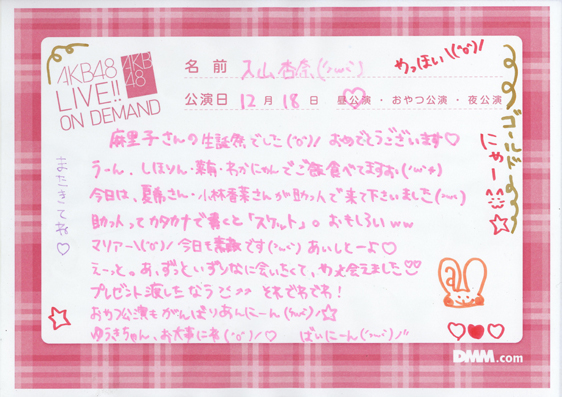 AKB48
LIVE!!
ON DEMAND
AKB
48
名前 入山杏奈(›ω‹)
やっほい\(^o^)/
公演日 12月18日 昼公演・おやつ公演・夜公演
麻里子さんの生誕祭でした(^o^)/ おめでとうございます♡
うーん、しほりん・
・わかにゃんでご飯食べてますお
今日は、夏希さん・小林香菜さんが助人で来て下さいました
助人ってカタカナで書くと「スケット」。おもしろいww
マリアー\(^o^)/ 今日も素敵です あいしとーよ♡
えーっと。あ、ずっといずりなに会いたくて、や
会えました♡
プレゼント渡したなう それでわでわ!
おやつ公演もがんばりあんにーん
ゆうきちゃん、お大事にね(^o^)/♡ ばいにーん
ゴールド
にゃー
まだきてね♡
an
DMM.com